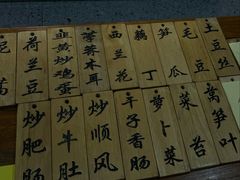 荷兰豆
韭黄炒鸡蛋
木耳
西兰花
丁
笋瓜
毛豆
土豆丝
炒肥肠
炒牛肚
炒顺风
子香肠
萝卜菜
菜苔
萵笋